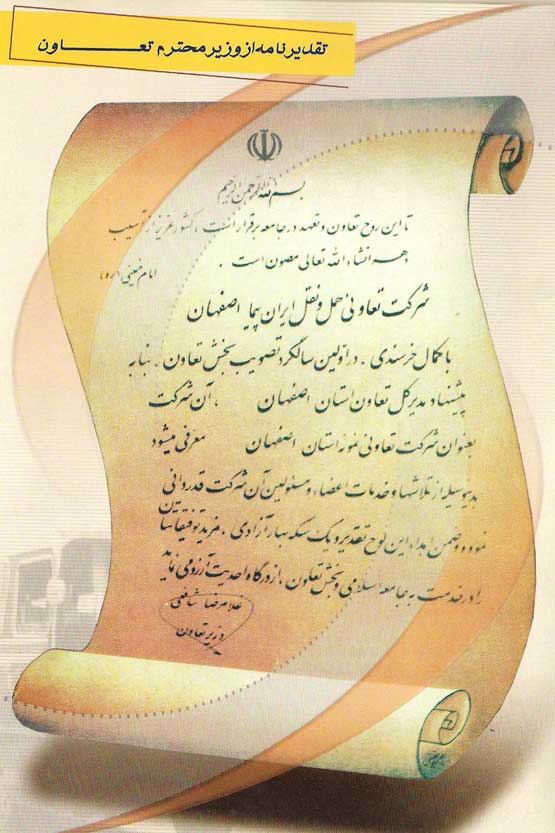 تقدیرنامه از وزیر محترم تعـــــاون
بسم الله الرحمن الرحیم
تا این روح تعاون و تعهد در جامعه برقرار است ، کشور عزیز از آسیب
دهر انشاء الله تعالی مصون است .
امام خمینی (ره)
شرکت تعاونی حمل و نقل ایران پیما اصفهان
با کمال خرسندی ، در اولین سالگرد تصویب بخش تعاون . بنا به
پیشنهاد مدیر کل تعاون استان اصفهان ، آن شرکت
بعنوان شرکت تعاونی نمونه استان اصفهان معرفی میشود
بدینوسیله از تلاشها و خدمات اعضاء و مسئولین آن شرکت قدردانی
نموده و ضمن اهداء این لوح تقدیر و یک سکه بهار آزادی ، مزید توفیقاتتان
را در خدمت به جامعه اسلامی و بخش تعاون ، از درگاه احدیت آرزو می نماید
غلامرضا شافعی
وزیر تعاون